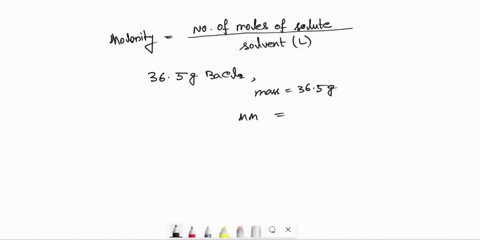 Molarity = No. of moles of solute / solvent (L)
36.5g BaCl₂,
mass = 36.5g
MM =